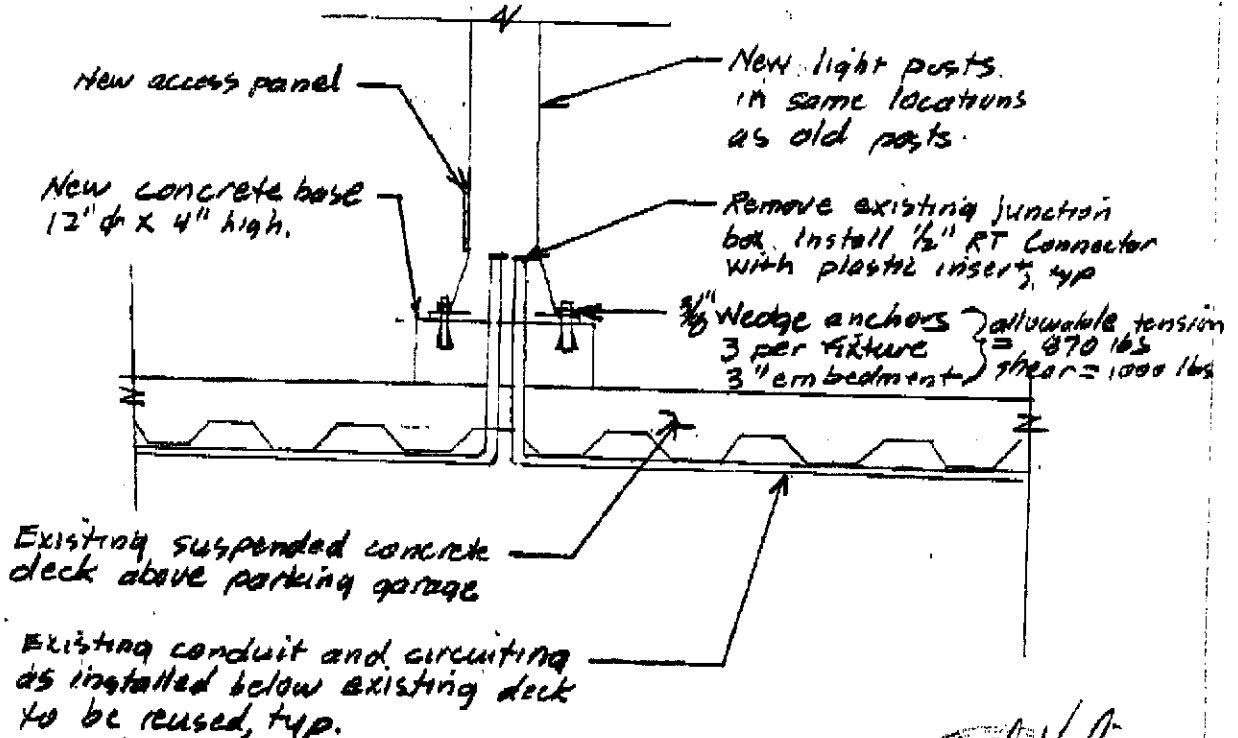 New access panel
New light posts.
in same locations
as old posts.
New concrete base
12"ϕ x 4" high.
Remove existing junction
box. Install 1/2" RT Connector
with plastic insert, typ
3/8" Wedge anchors
3 per fixture
3" embedment
allowable tension
= 870 lbs
shear = 1000 lbs
Existing suspended concrete
deck above parking garage
Existing conduit and circuiting
as installed below existing deck
to be reused, typ.